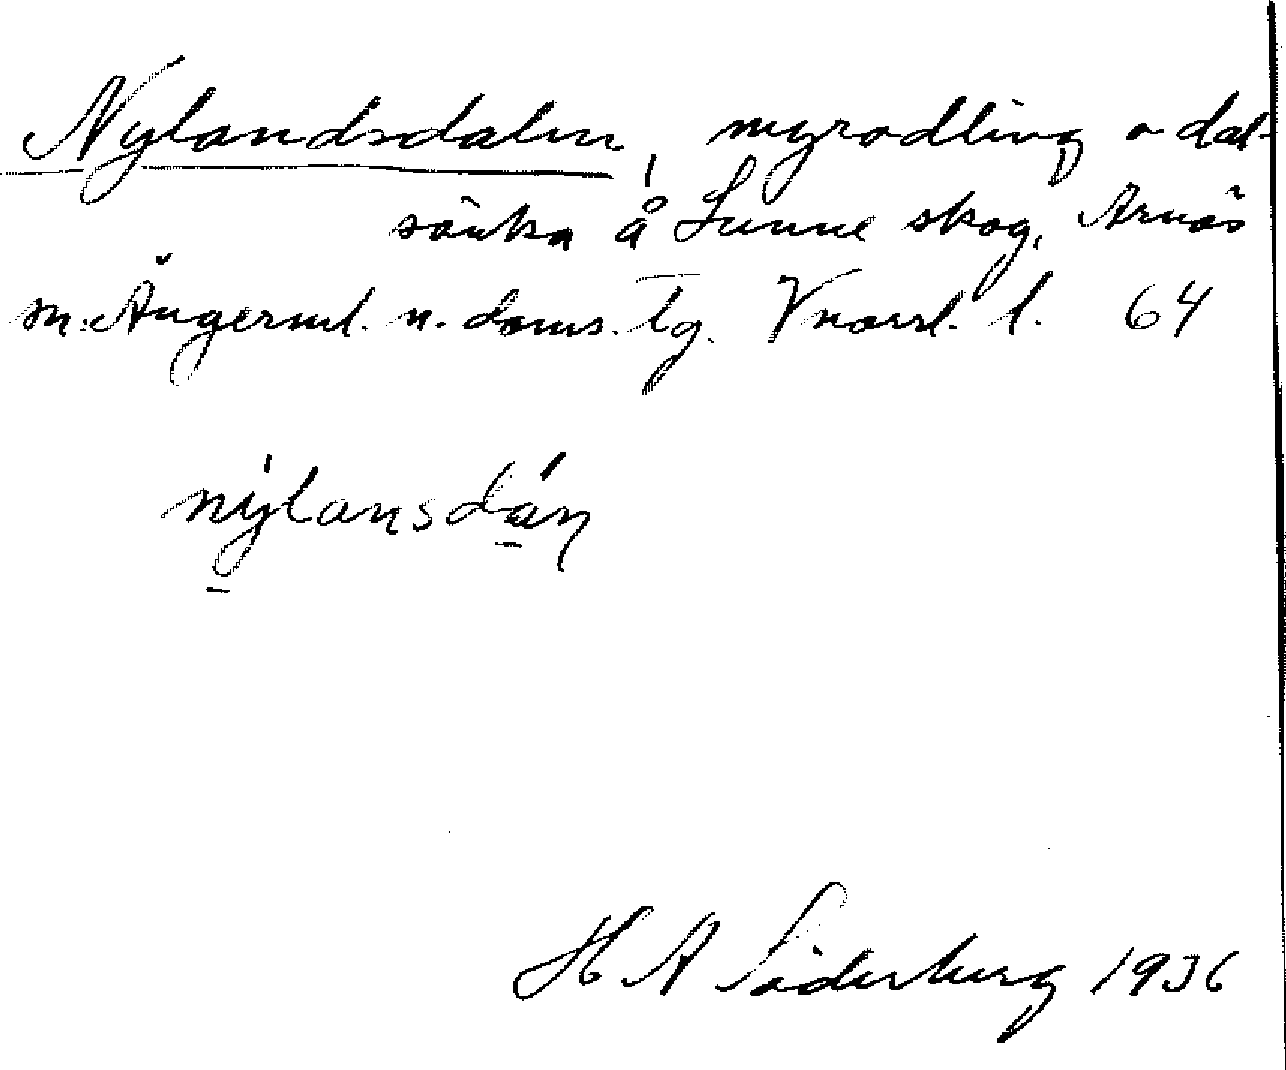 Nylandsdalen, myrodling o dal-
sänka å Sunne skog, Arnäs
sn. Ångerml. n. doms. lg. Vnorrl. l. 64
nýlansdán
H A Söderberg 1936